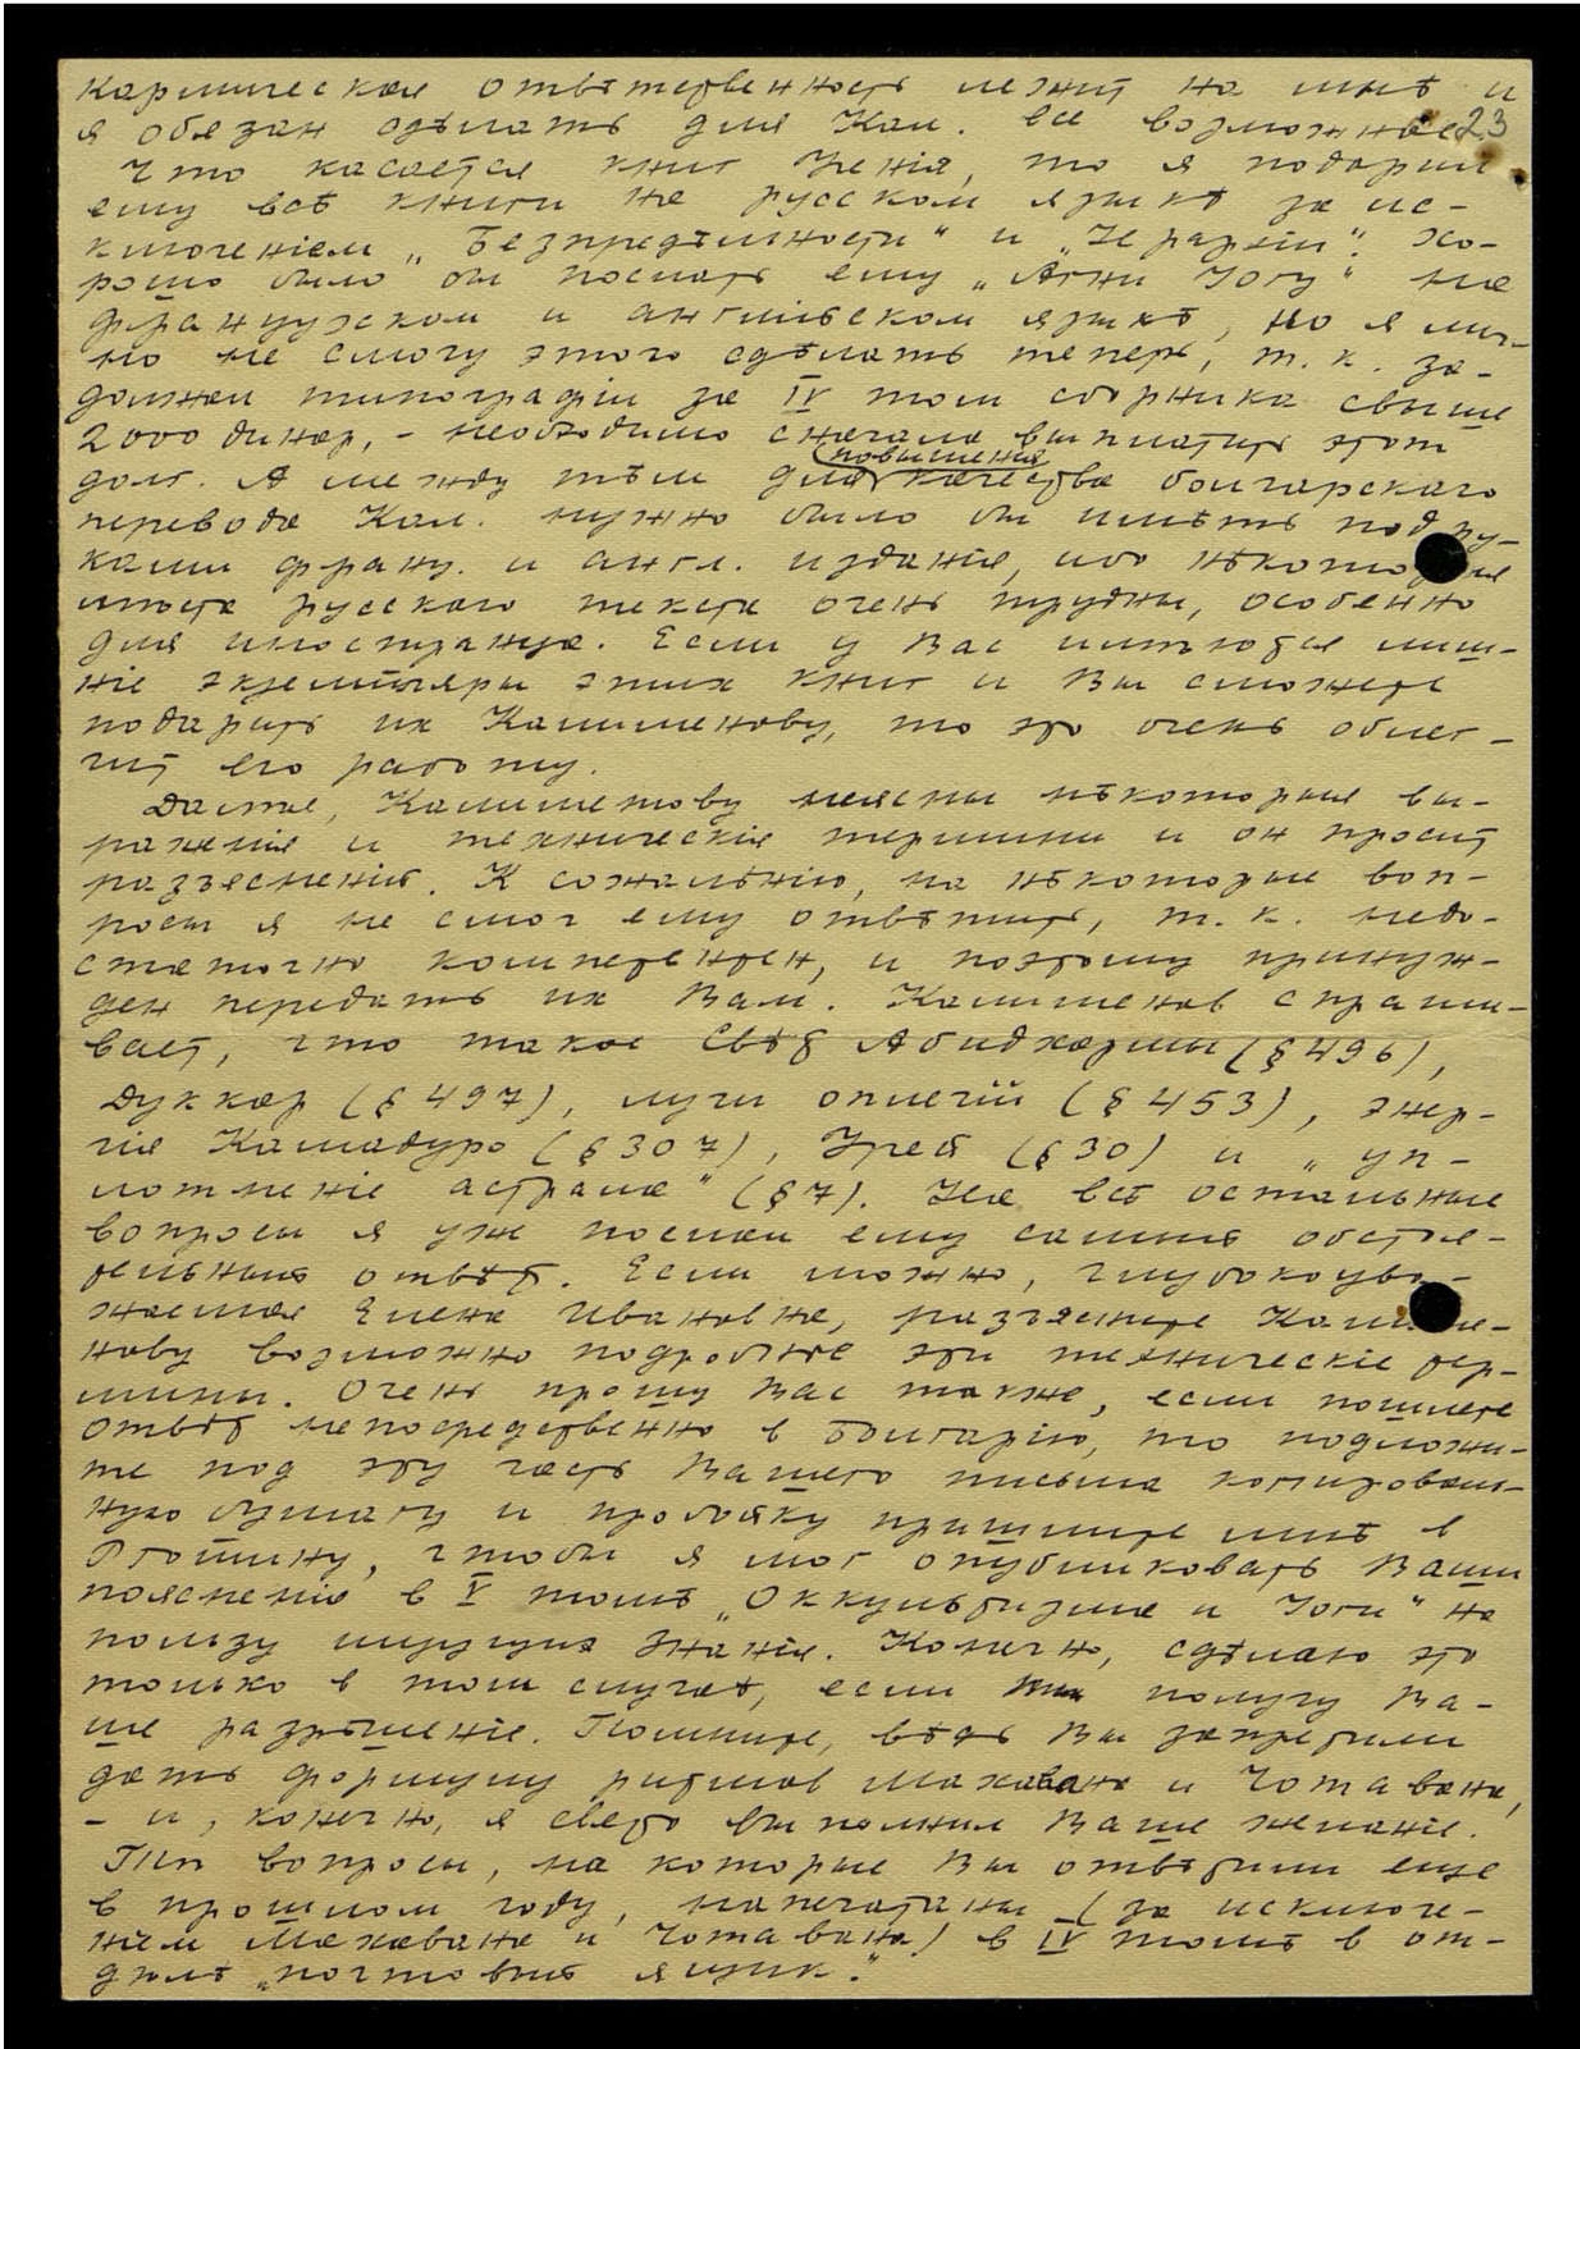 кармическая отвѣтственность лежит на мнѣ и
я обязан сдѣлать для Кам. все возможное. 23
Что касается книг Ученія, то я подарил
ему всѣ книги на русском языкѣ за ис-
ключеніем „Безпредѣльности“ и „Іерархіи“. Хо-
рошо было бы послать ему „Агни Іогу“ на
французском и англійском языкѣ, но я лич-
но не смогу этого сдѣлать теперь, т. к. за-
должен типографіи за IV том сборника свыше
2000 динар, - необходимо сначала выплатить этот
долг. А между тѣм для (повышенія) качества болгарскаго
перевода Кам. нужно было бы имѣть под ру-
ками франц. и англ. изданія, ибо нѣкоторыя
мѣста русскаго текста очень трудны, особенно
для иностранца. Если у Вас имѣются лиш-
ніе экземпляры этих книг и Вы сможете
подарить их Камменову, то это очень облег-
чит его работу.
Далѣе, Камменову неясны нѣкоторыя вы-
раженія и техническіе термины и он просит
разъясненій. К сожалѣнію, на нѣкоторые воп-
росы я не смог ему отвѣтить, т. к. недо-
статочно компетентен, и поэтому принуж-
ден передать их Вам. Камменов спраши-
вает, что такое Свѣт Абидхармы (§ 496),
Дуккар (§ 497), лучи оплечій (§ 453), энер-
гія Камадуро (§ 307), Урей (§ 30) и „уп-
лотненіе астрала“ (§ 7). На всѣ остальные
вопросы я уже послал ему самый обстоя-
тельный отвѣт. Если можно, глубокоува-
жаемая Елена Ивановна, разъясните Камме-
нову возможно подробнѣе эти техническіе тер-
мины. Очень прошу Вас также, если пошлете
отвѣт непосредственно в Болгарію, то подложи-
те под эту часть Вашего письма копироваль-
ную бумагу и пробойку пришлите мнѣ в
Птойину, чтобы я мог опубликовать Ваши
поясненія в V томѣ „Оккультизма и Іоги“ на
пользу ищущих Знанія. Конечно, сдѣлаю это
только в том случаѣ, если получу Ва-
ше разрѣшеніе. Помните, вѣдь Вы запретили
дать формулу ритмов Махавана и Чотавана,
- и, конечно, я свято выполнил Ваше желаніе.
Тѣ вопросы, на которые Вы отвѣтили еще
в прошлом году, напечатаны (за исключе-
ніем Махавана и Чотавана) в IV томѣ в от-
дѣлѣ „почтовый ящик.“